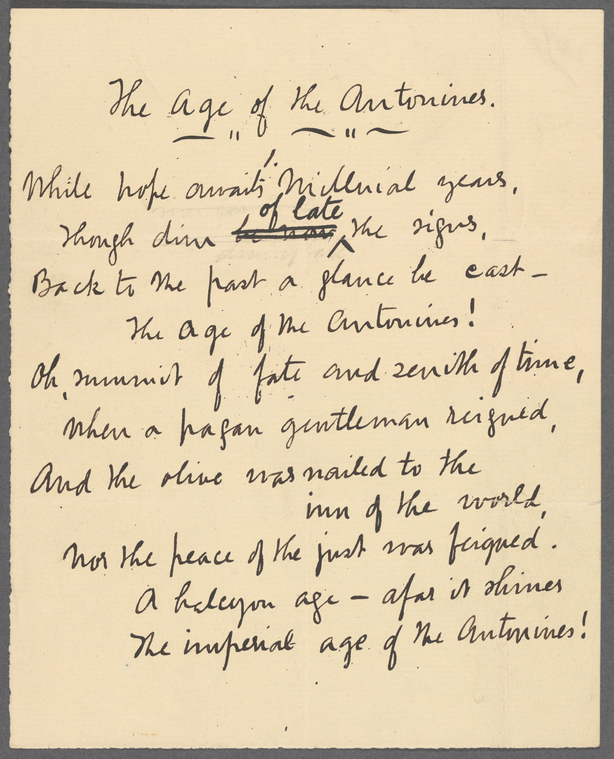 The Age of the Antonines.
While hope awaits Millenial years,
of late
Though dim the signs,
Back to the past a glance be cast —
The Age of the Antonines!
Oh, summit of fate and zenith of time,
When a pagan gentleman reigned,
And the olive was nailed to the
inn of the world,
Nor the peace of the just was feigned.
A halcyon age — afar it shines
The imperial age of the Antonines!